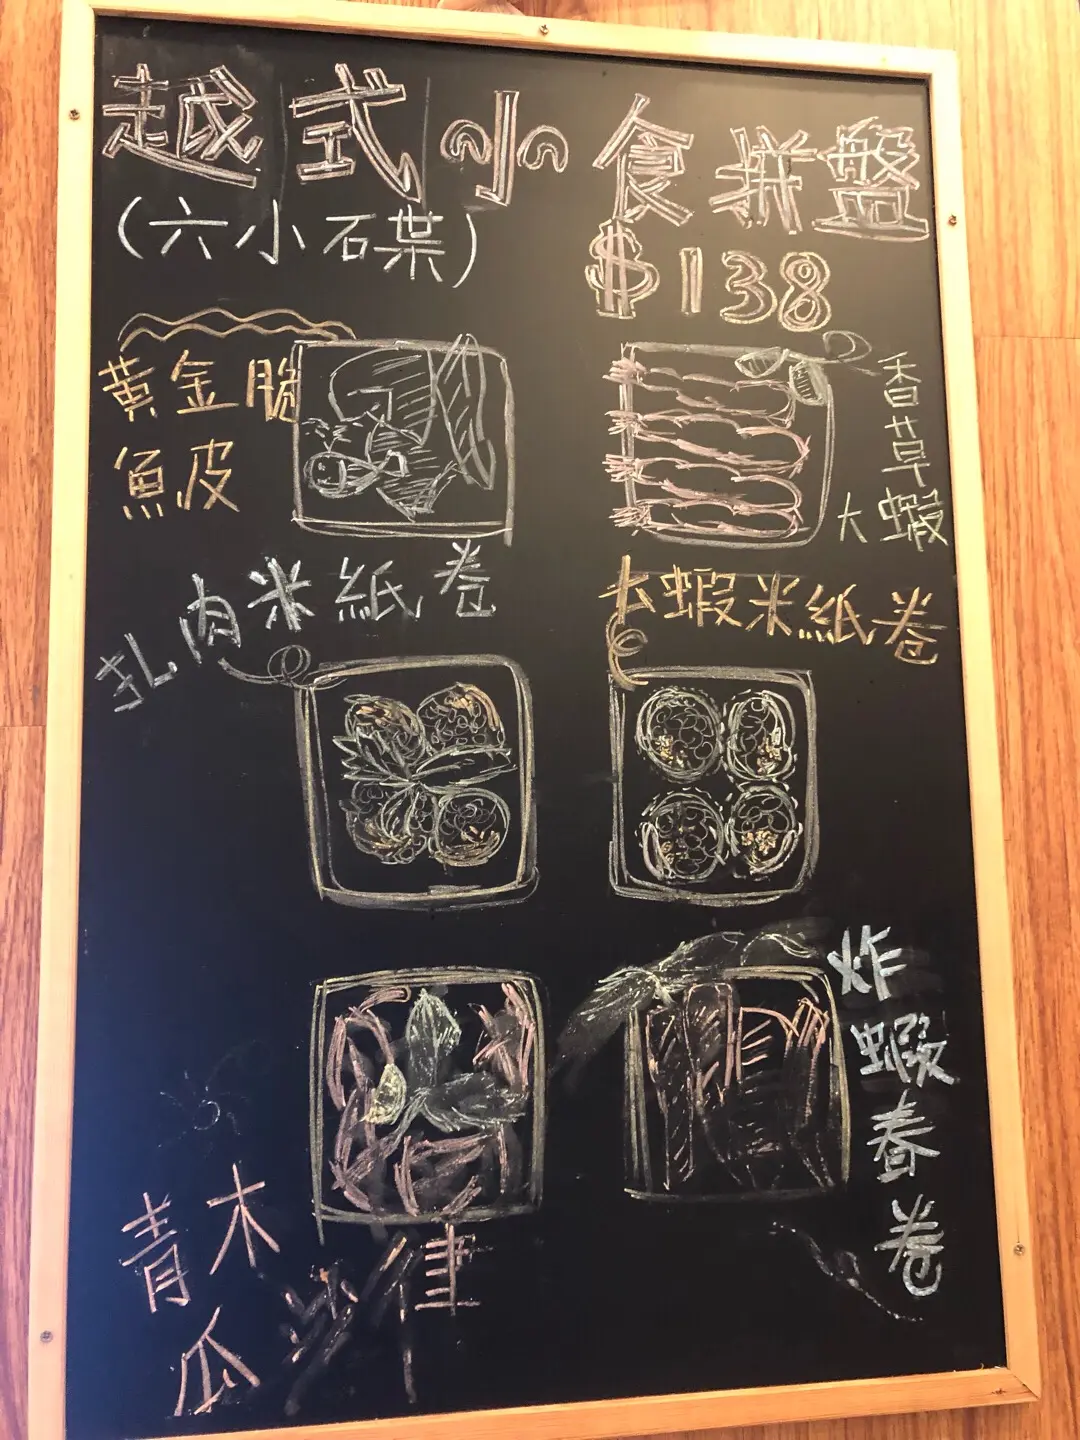 越式小食拼盤
(六小石碟)
$138
黃金脆
魚皮
香草
大蝦
扎肉米紙卷
大蝦米紙卷
炸蝦春卷
青木
瓜沙律